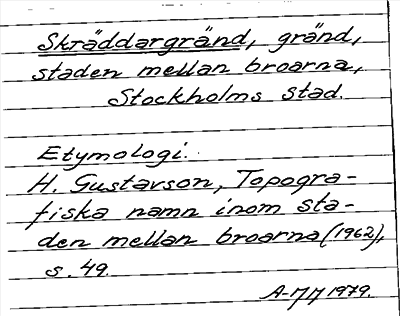 Skräddargränd, gränd,
staden mellan broarna,
Stockholms stad.
Etymologi:
H. Gustavson, Topogra-
fiska namn inom sta-
den mellan broarna (1962),
s. 49.
1979.